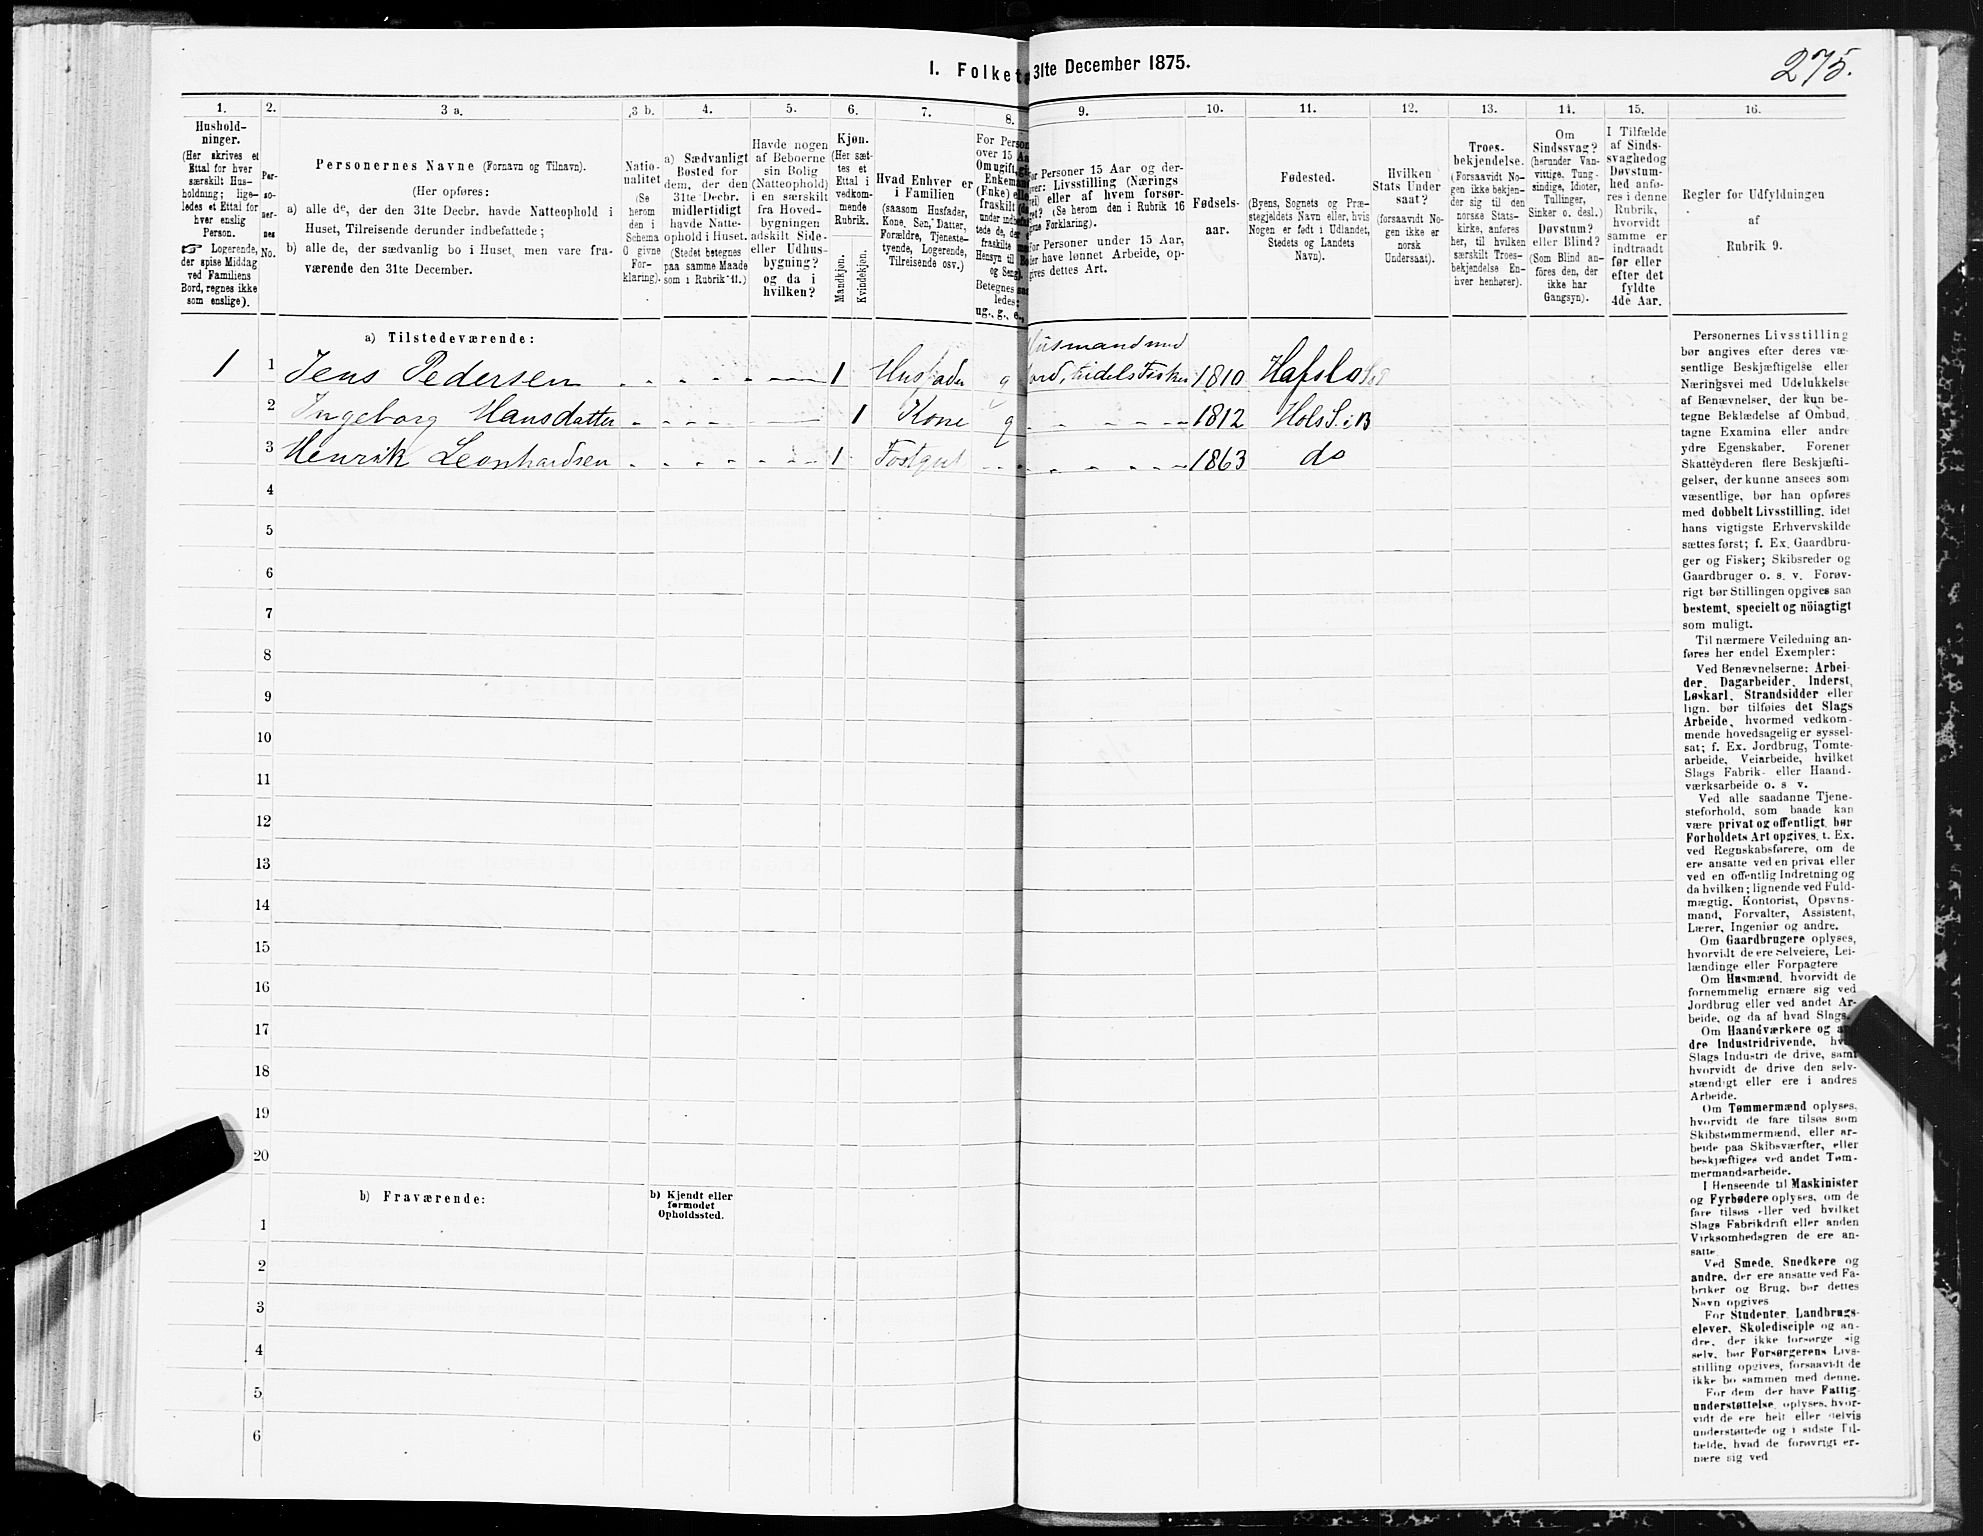 275.
I. Folket 31te December 1875.
1. 2. 3 a. 3 b. 4. 5. 6. 7. 8. 9. 10. 11. 12. 13. 14. 15. 16.
Hushold-
ninger.
(Her skrives et
Ettal for hver
særskilt Hus-
holdning; lige-
ledes et Ettal for
hver enslig
Person.
☞ Logerende,
der spise Middag
ved Familiens
Bord, regnes ikke
som enslige).
Per-
so-
ner-
nes
No.
Personernes Navne (Fornavn og Tilnavn).
(Her opføres:
a) alle de, der den 31te Decbr. havde Natteophold i
Huset, Tilreisende derunder indbefattede;
b) alle de, der sædvanlig bo i Huset, men vare fra-
værende den 31te December.
Natio-
nalitet
(Se
herom
den i
Schema
O givne
For-
klaring).
a) Sædvanligt
Bosted for
dem, der den
31te Decbr.
midlertidigt
havde Natte-
ophold i Huset.
(Stedet betegnes
paa samme Maade
som i Rubrik 11.)
Havde nogen
af Beboerne
sin Bolig
(Natteophold)
i en særskilt
fra Hoved-
bygningen
adskilt Side-
eller Udhus-
bygning?
og da i
hvilken?
Kjøn.
(Her sæt-
tes et
Ettal i
vedkom-
mende
Rubrik.
Mandkjøn.
Kvindekjøn.
Hvad Enhver er
i Familien
(saasom Husfader,
Kone, Søn, Datter,
Forældre, Tjeneste-
tyende, Logerende,
Tilreisende osv.)
For Person
over 15 Aa
Om ugift, gi
Enkema
(Enke) ell
fraskilt
under indbe
tede de, der
fraskilte
Hensyn til Bo
og Seng).
Betegnes saa
ledes:
ug., g., e.,
or Personer 15 Aar og der-
ver: Livsstilling (Nærings
vei) eller af hvem forsør-
get? (Se herom den i Rubrik 16
givne Forklaring).
For Personer under 15 Aar,
der have lønnet Arbeide, op-
gives dettes Art.
Fødsels-
aar.
Fødested.
(Byens, Sognets og Præ-
stegjeldets Navn eller, hvis
Nogen er født i Udlandet,
Stedets og Landets
Navn).
Hvilken
Stats Under
saat?
(forsaavidt No-
gen ikke er
norsk
Undersaat).
Troes-
bekjendelse.
(Forsaavidt No-
gen ikke bekjen-
der sig til den
norske Stats-
kirke, anføres
her, til hvilken
særskilt Troes-
bekjendelse En-
hver henhører).
Om
Sindssvag?
(herunder Van-
vittige, Tung-
sindige, Idioter,
Tullinger,
Sinker o. desl.)
Døvstum?
eller Blind?
(Som Blind an-
føres den, der
ikke har
Gangsyn).
I Tilfælde
af Sinds-
svaghed og
Døvstum-
hed anfø-
res i denne
Rubrik,
hvorvidt
samme er
indtraadt
før eller
efter det
fyldte
4de Aar.
Regler for Udfyldningen
af
Rubrik 9.
a) Tilstedeværende:
Husmand med
1 1 Jens Pedersen 1 Husfader g Jord, tildels Fisker 1810 Hafslo
2 Ingeborg Hansdatter 1 Kone g 1812 Hols S. i B
3 Henrik Leonhardsen 1 Fostgut 1863 do
4
5
6
7
8
9
10
11
12
13
14
15
16
17
18
19
20
b) Fraværende:
b) Kjendt eller
formodet
Opholdssted.
1
2
3
4
5
6
Personernes Livsstilling
bør angives efter deres væ-
sentlige Beskjæftigelse eller
Næringsvei med Udelukkelse
af Benævnelser, der kun be-
tegne Beklædelse af Ombud,
tagne Examina eller andre
ydre Egenskaber. Forener
Skatteyderen flere Beskjæfti-
gelser, der kunne ansees som
væsentlige, bør han opføres
med dobbelt Livsstilling, idet
hans vigtigste Erhvervskilde
sættes først; f. Ex. Gaardbru-
ger og Fisker; Skibsreder og
Gaardbruger o. s. v. Forøv-
rigt bør Stillingen opgives saa
bestemt, specielt og nöiagtigt
som muligt.
Til nærmere Veiledning an-
føres her endel Exempler:
Ved Benævnelserne: Arbei-
der, Dagarbeider, Inderst,
Løskarl, Strandsidder eller
lign. bør tilføies det Slags
Arbeide, hvormed vedkom-
mende hovedsagelig er syssel-
sat; f. Ex. Jordbrug, Tomte-
arbeide, Veiarbeide, hvilket
Slags Fabrik- eller Haand-
værksarbeide o. s. v.
Ved alle saadanne Tjene-
steforhold, som baade kan
være privat og offentligt, bør
Forholdets Art opgives, t. Ex.
ved Regnskabsførere, om de
ere ansatte ved en privat eller
ved en offentlig Indretning og
da hvilken; lignende ved Fuld-
mægtig, Kontorist, Opsyns-
mand, Forvalter, Assistent,
Lærer, Ingeniør og andre.
Om Gaardbrugere oplyses,
hvorvidt de ere Selveiere, Lei-
lændinge eller Forpagtere
Om Husmænd, hvorvidt de
fornemmelig ernære sig ved
Jordbrug eller ved andet Ar-
beide, og da af hvad Slags.
Om Haandværkere og an-
dre Industridrivende, hvad
Slags Industri de drive, samt
hvorvidt de drive den selv-
stændigt eller ere i andres
Arbeide.
Om Tømmermænd oplyses,
hvorvidt de fare tilsøs som
Skibstømmermænd, eller ar-
beide paa Skibsværfter, eller
beskjæftiges ved andet Tøm-
mermandsarbeide.
I Henseende til Maskinister
og Fyrbødere oplyses, om de
fare tilsøs eller ved hvilket
Slags Fabrikdrift eller anden
Virksomhedsgren de ere an-
satte
Ved Smede, Snedkere og
andre, der ere ansatte ved Fa-
briker og Brug, bør dettes
Navn opgives
For Studenter, Landbrugs-
elever, Skoledisciple og an-
dre, der ikke forsørge sig
selv, bør Forsørgerens Livs-
stilling opgives, forsaavidt de
ikke bo sammen med denne.
For dem, der have Fattig-
understøttelse, oplyses, hvor-
vidt de ere helt eller delvis
understøttede og i sidste Til-
fælde, hvad de forøvrigt er-
nære sig ved